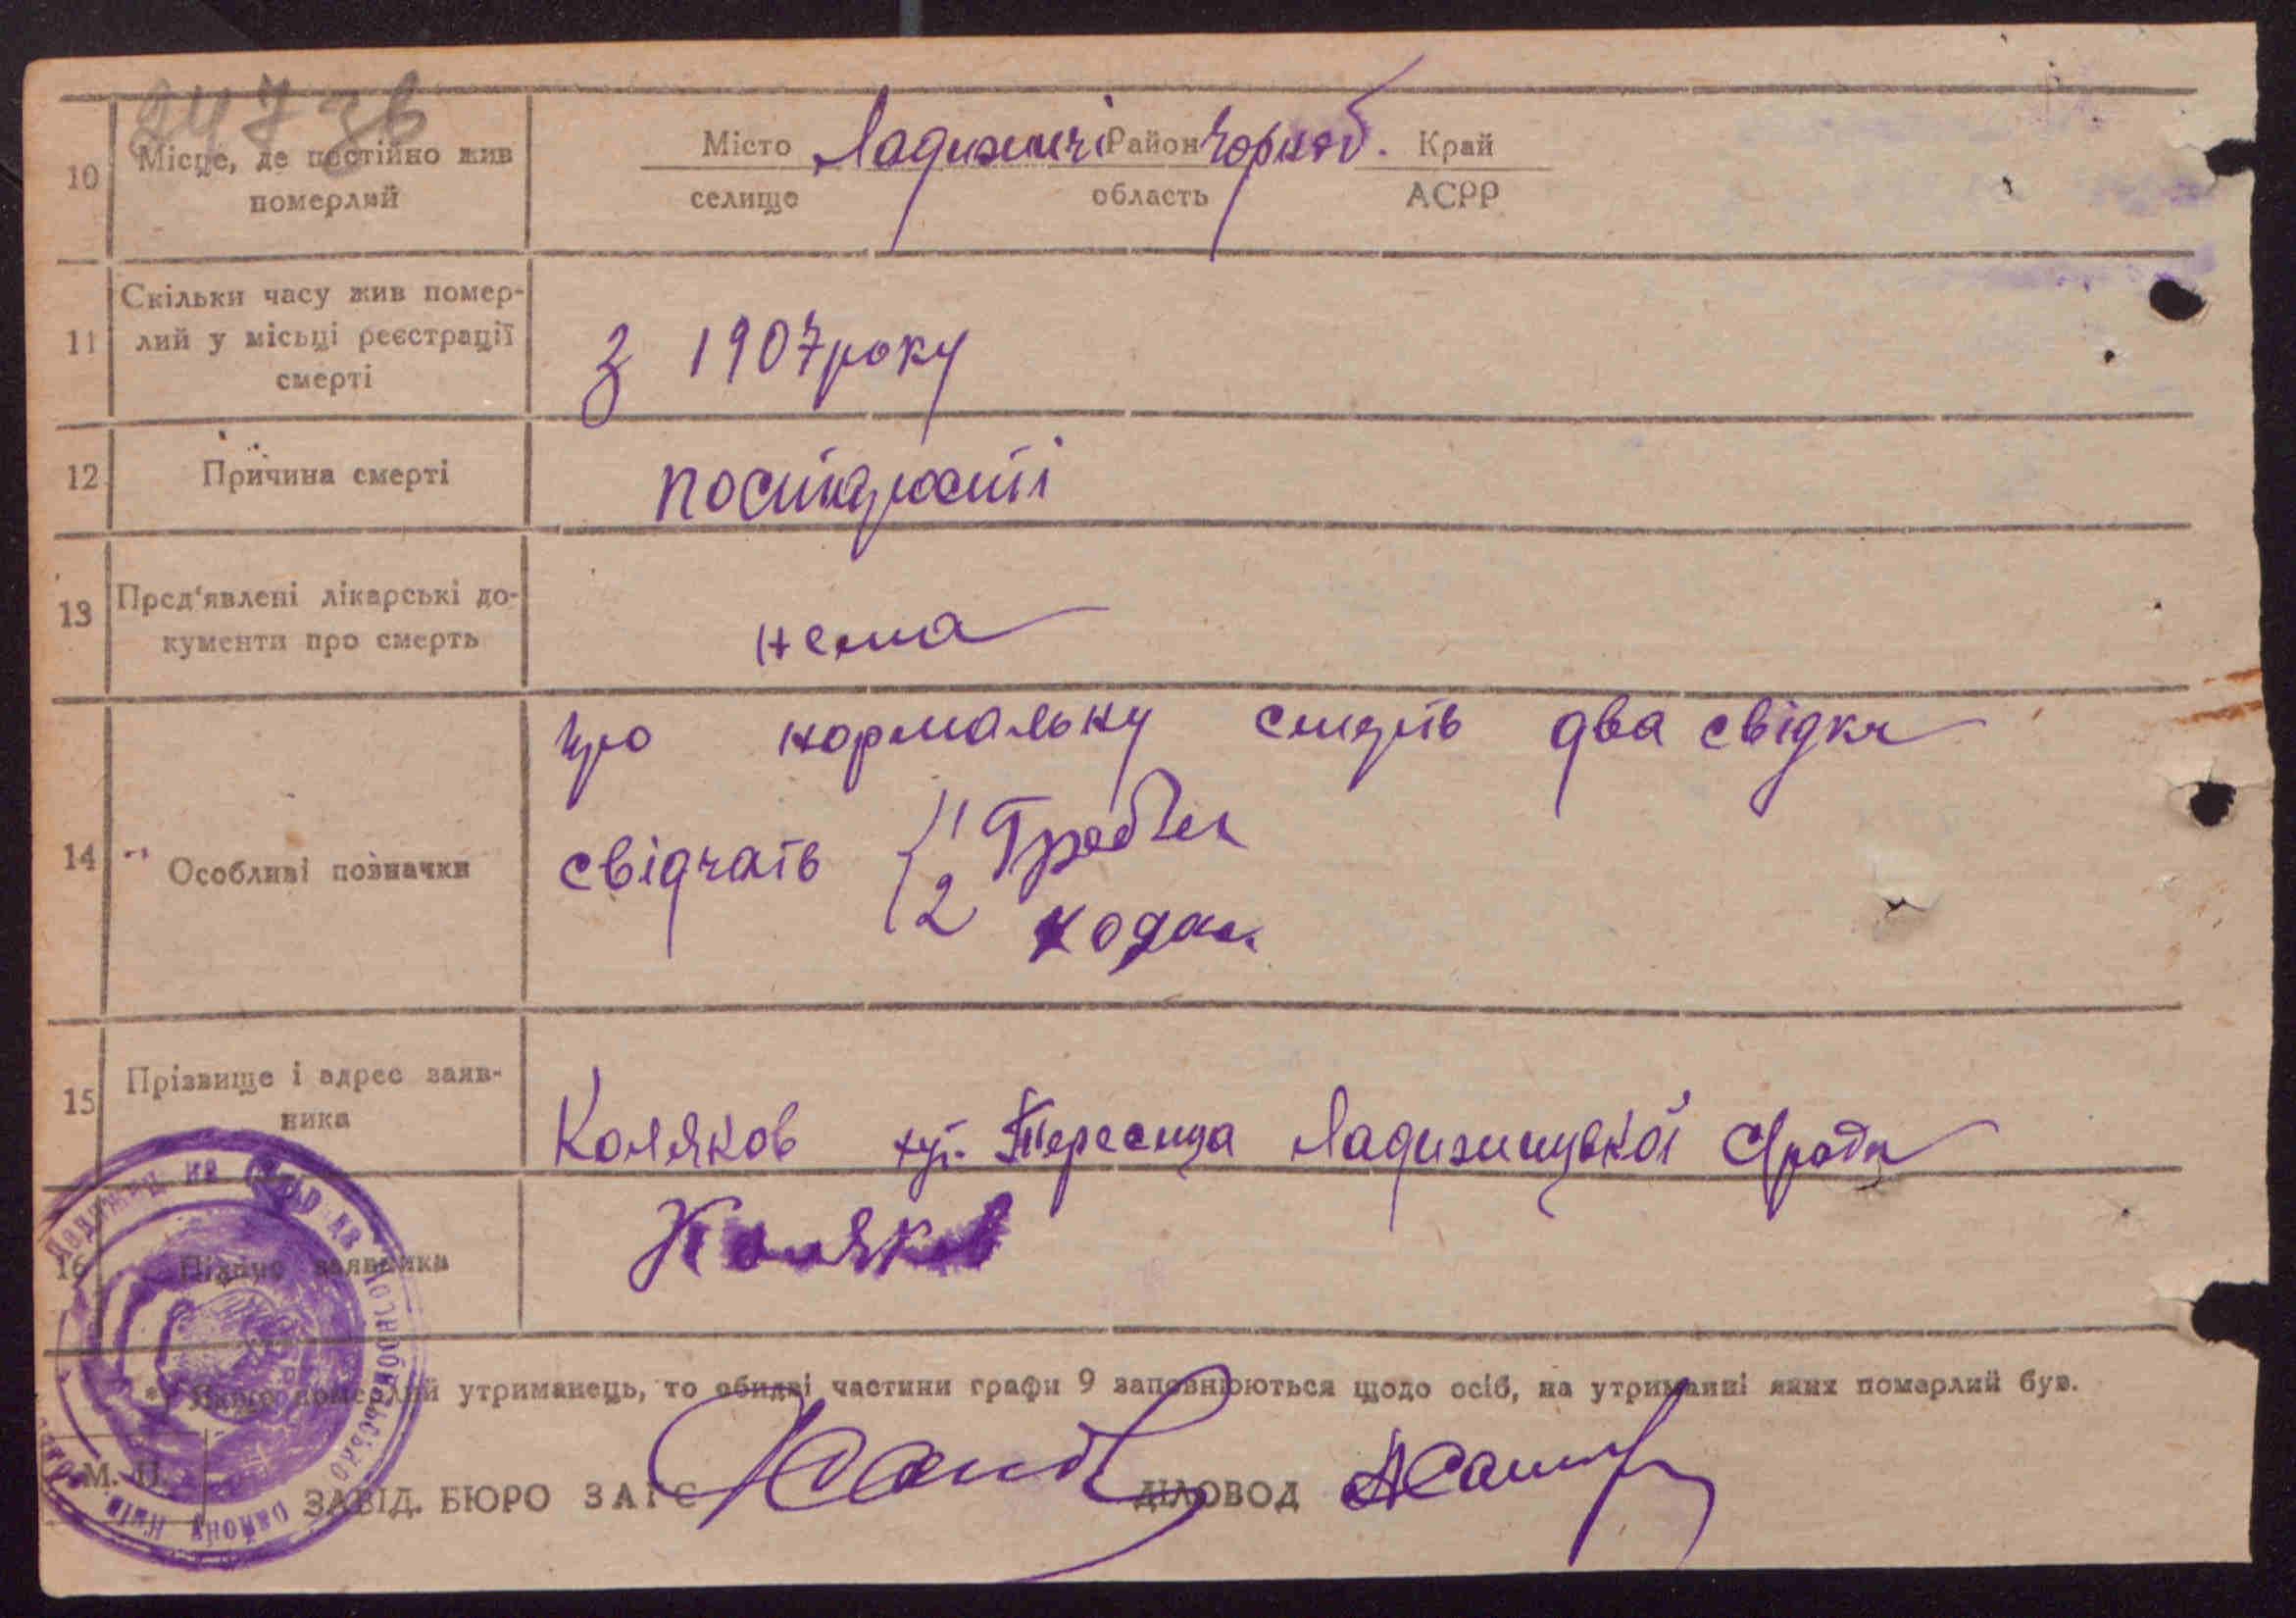 10
Місце, де постійно жив
померлий
Місто Ладижичі Район Чорноб. Край
селище область АСРР
11
Скільки часу жив помер-
лий у місьці реєстрації
смерті
З 1907 року
12
Причина смерті
по старості
13
Пред'явлені лікарські до-
кументи про смерть
нема
14
Особливі позначки
про нормальну смерть два свідки
свідчать 1)
2
15
Прізвище і адрес заяв-
ника
Коляков хут. Тересица Ладижицької С/ради
16
Підпис заявника
Коляков
*) Якщо померлий утриманець, то обидві частини графи 9 заповнюються щодо осіб, на утриманні яких померлий був.
М. П.
ЗАВІД. БЮРО ЗАГС
ДІЛОВОД